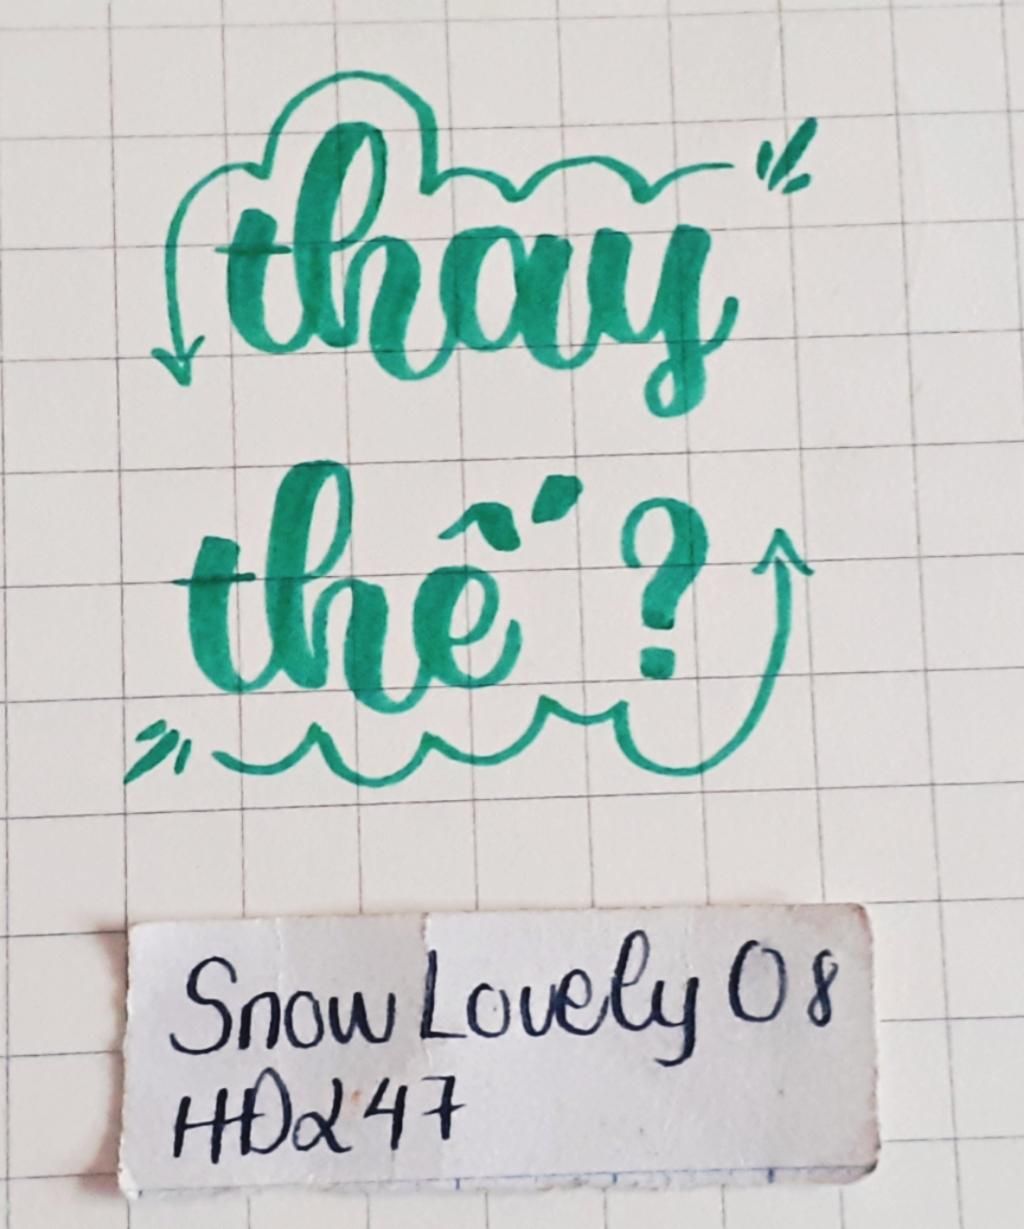 thay
thế ?
Snow Lovely 08
HDα47